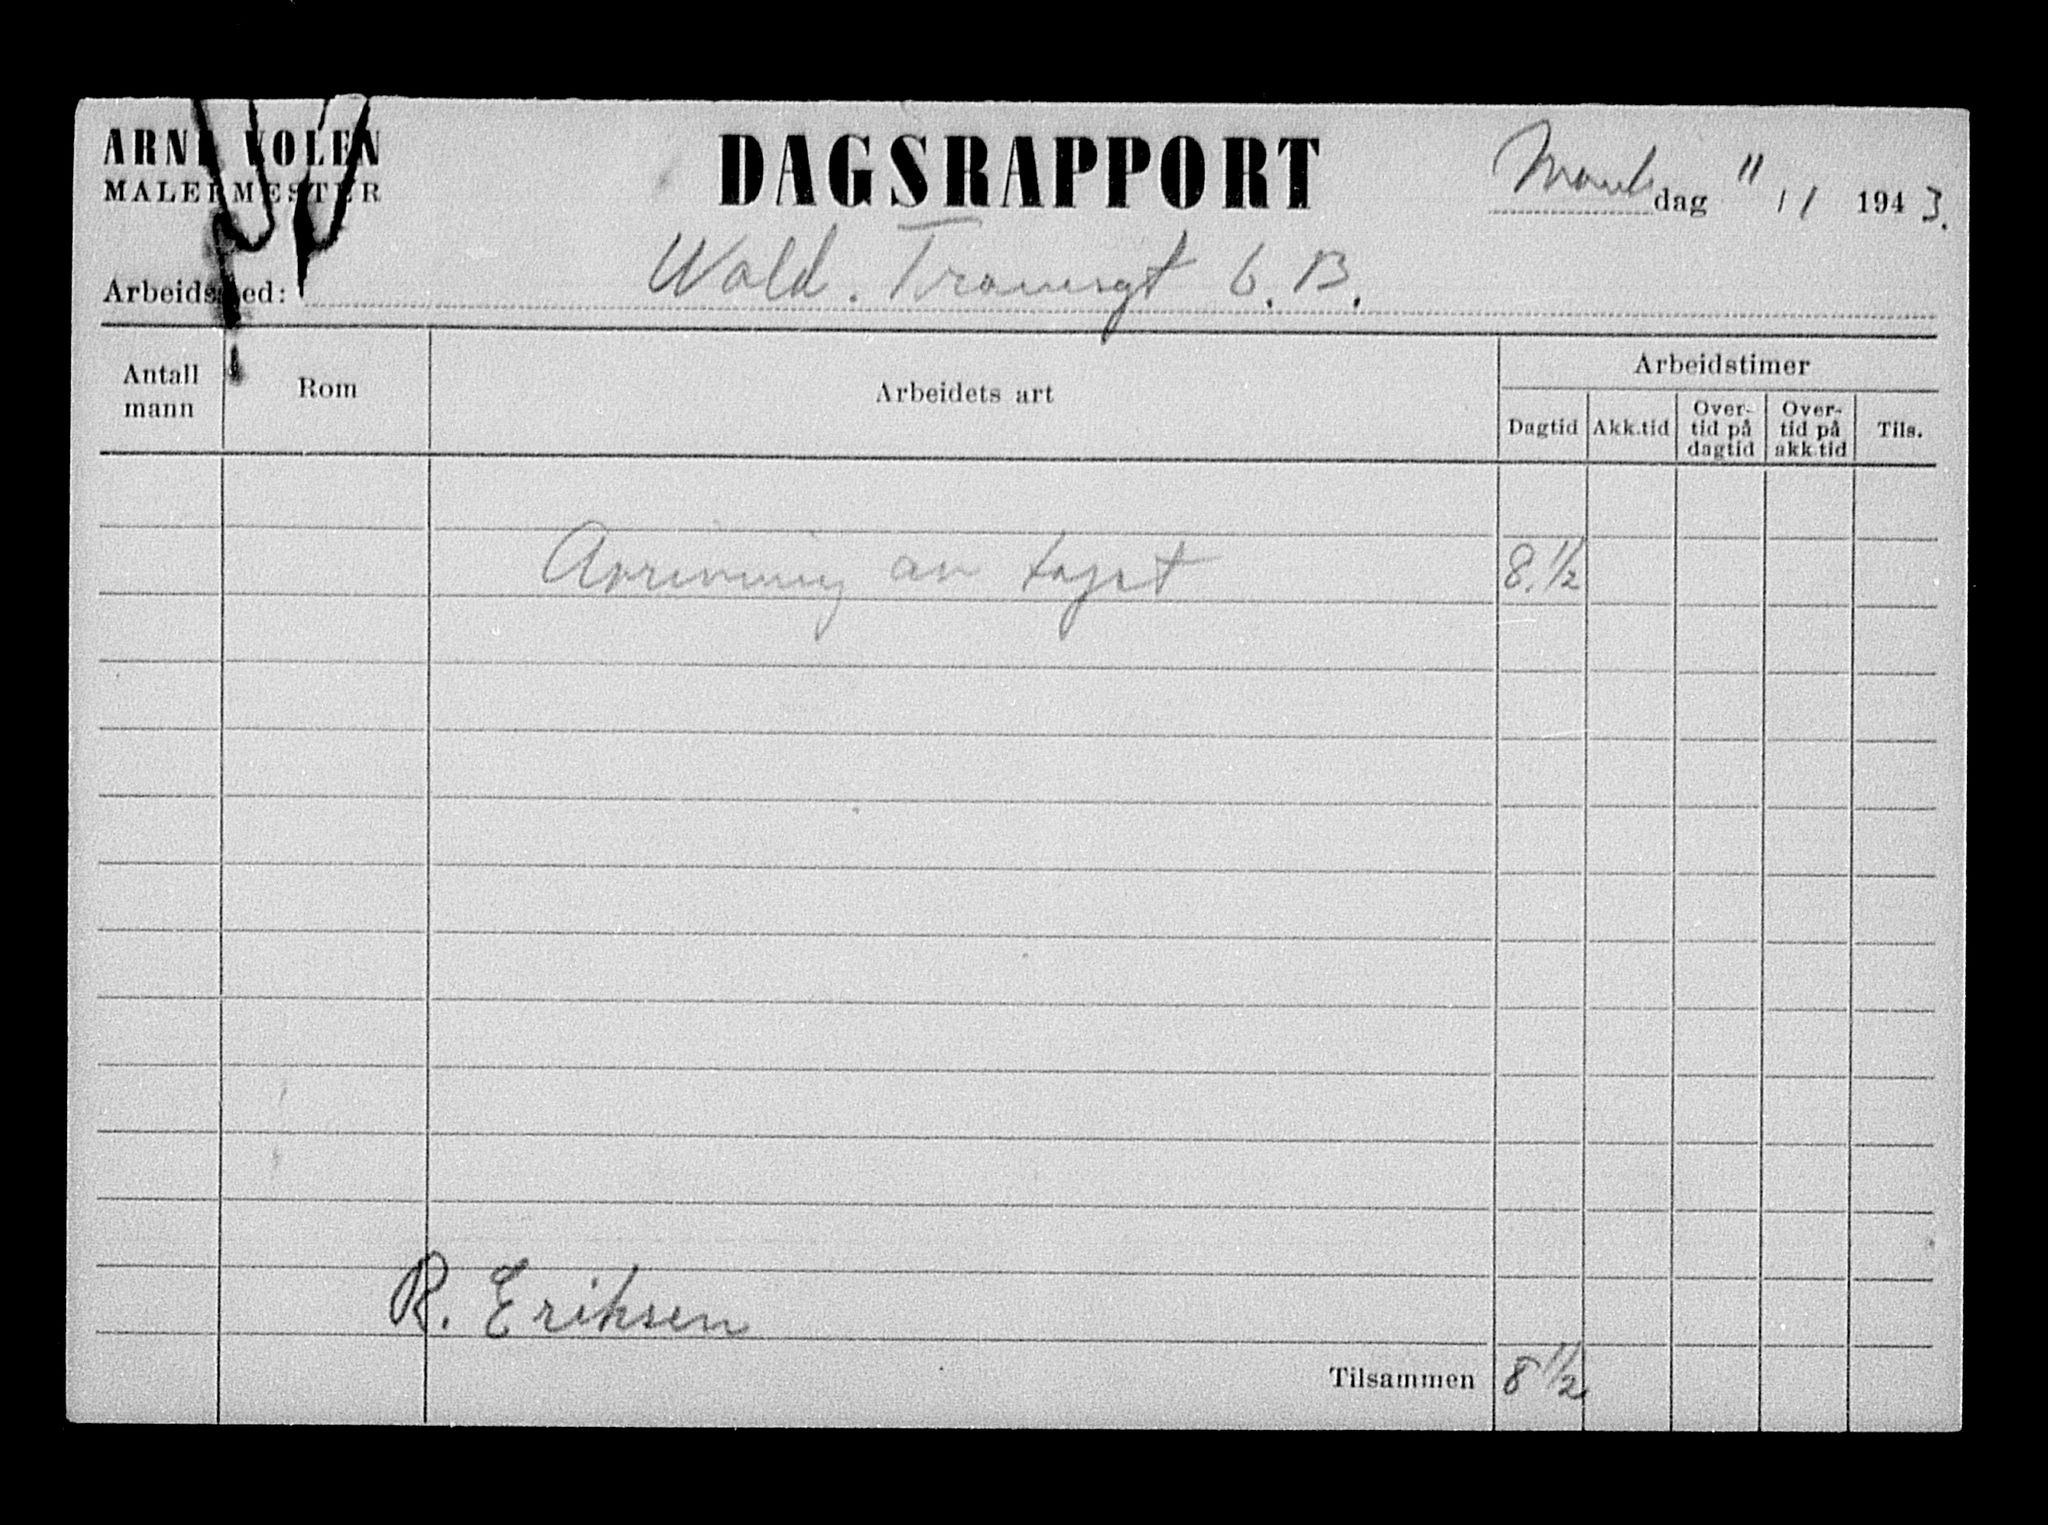 ARNE VOLEN
MALERMESTER
DAGSRAPPORT
Mandag 11/1 1943.
Arbeidssted: Wald. Tranesgt 6. B.
Antall mann
Rom
Arbeidets art
Arbeidstimer
Dagtid
Akk.tid
Overtid på dagtid
Overtid på akk.tid
Tils.
Avrivning av taget 8.½
R. Eriksen
Tilsammen 8½